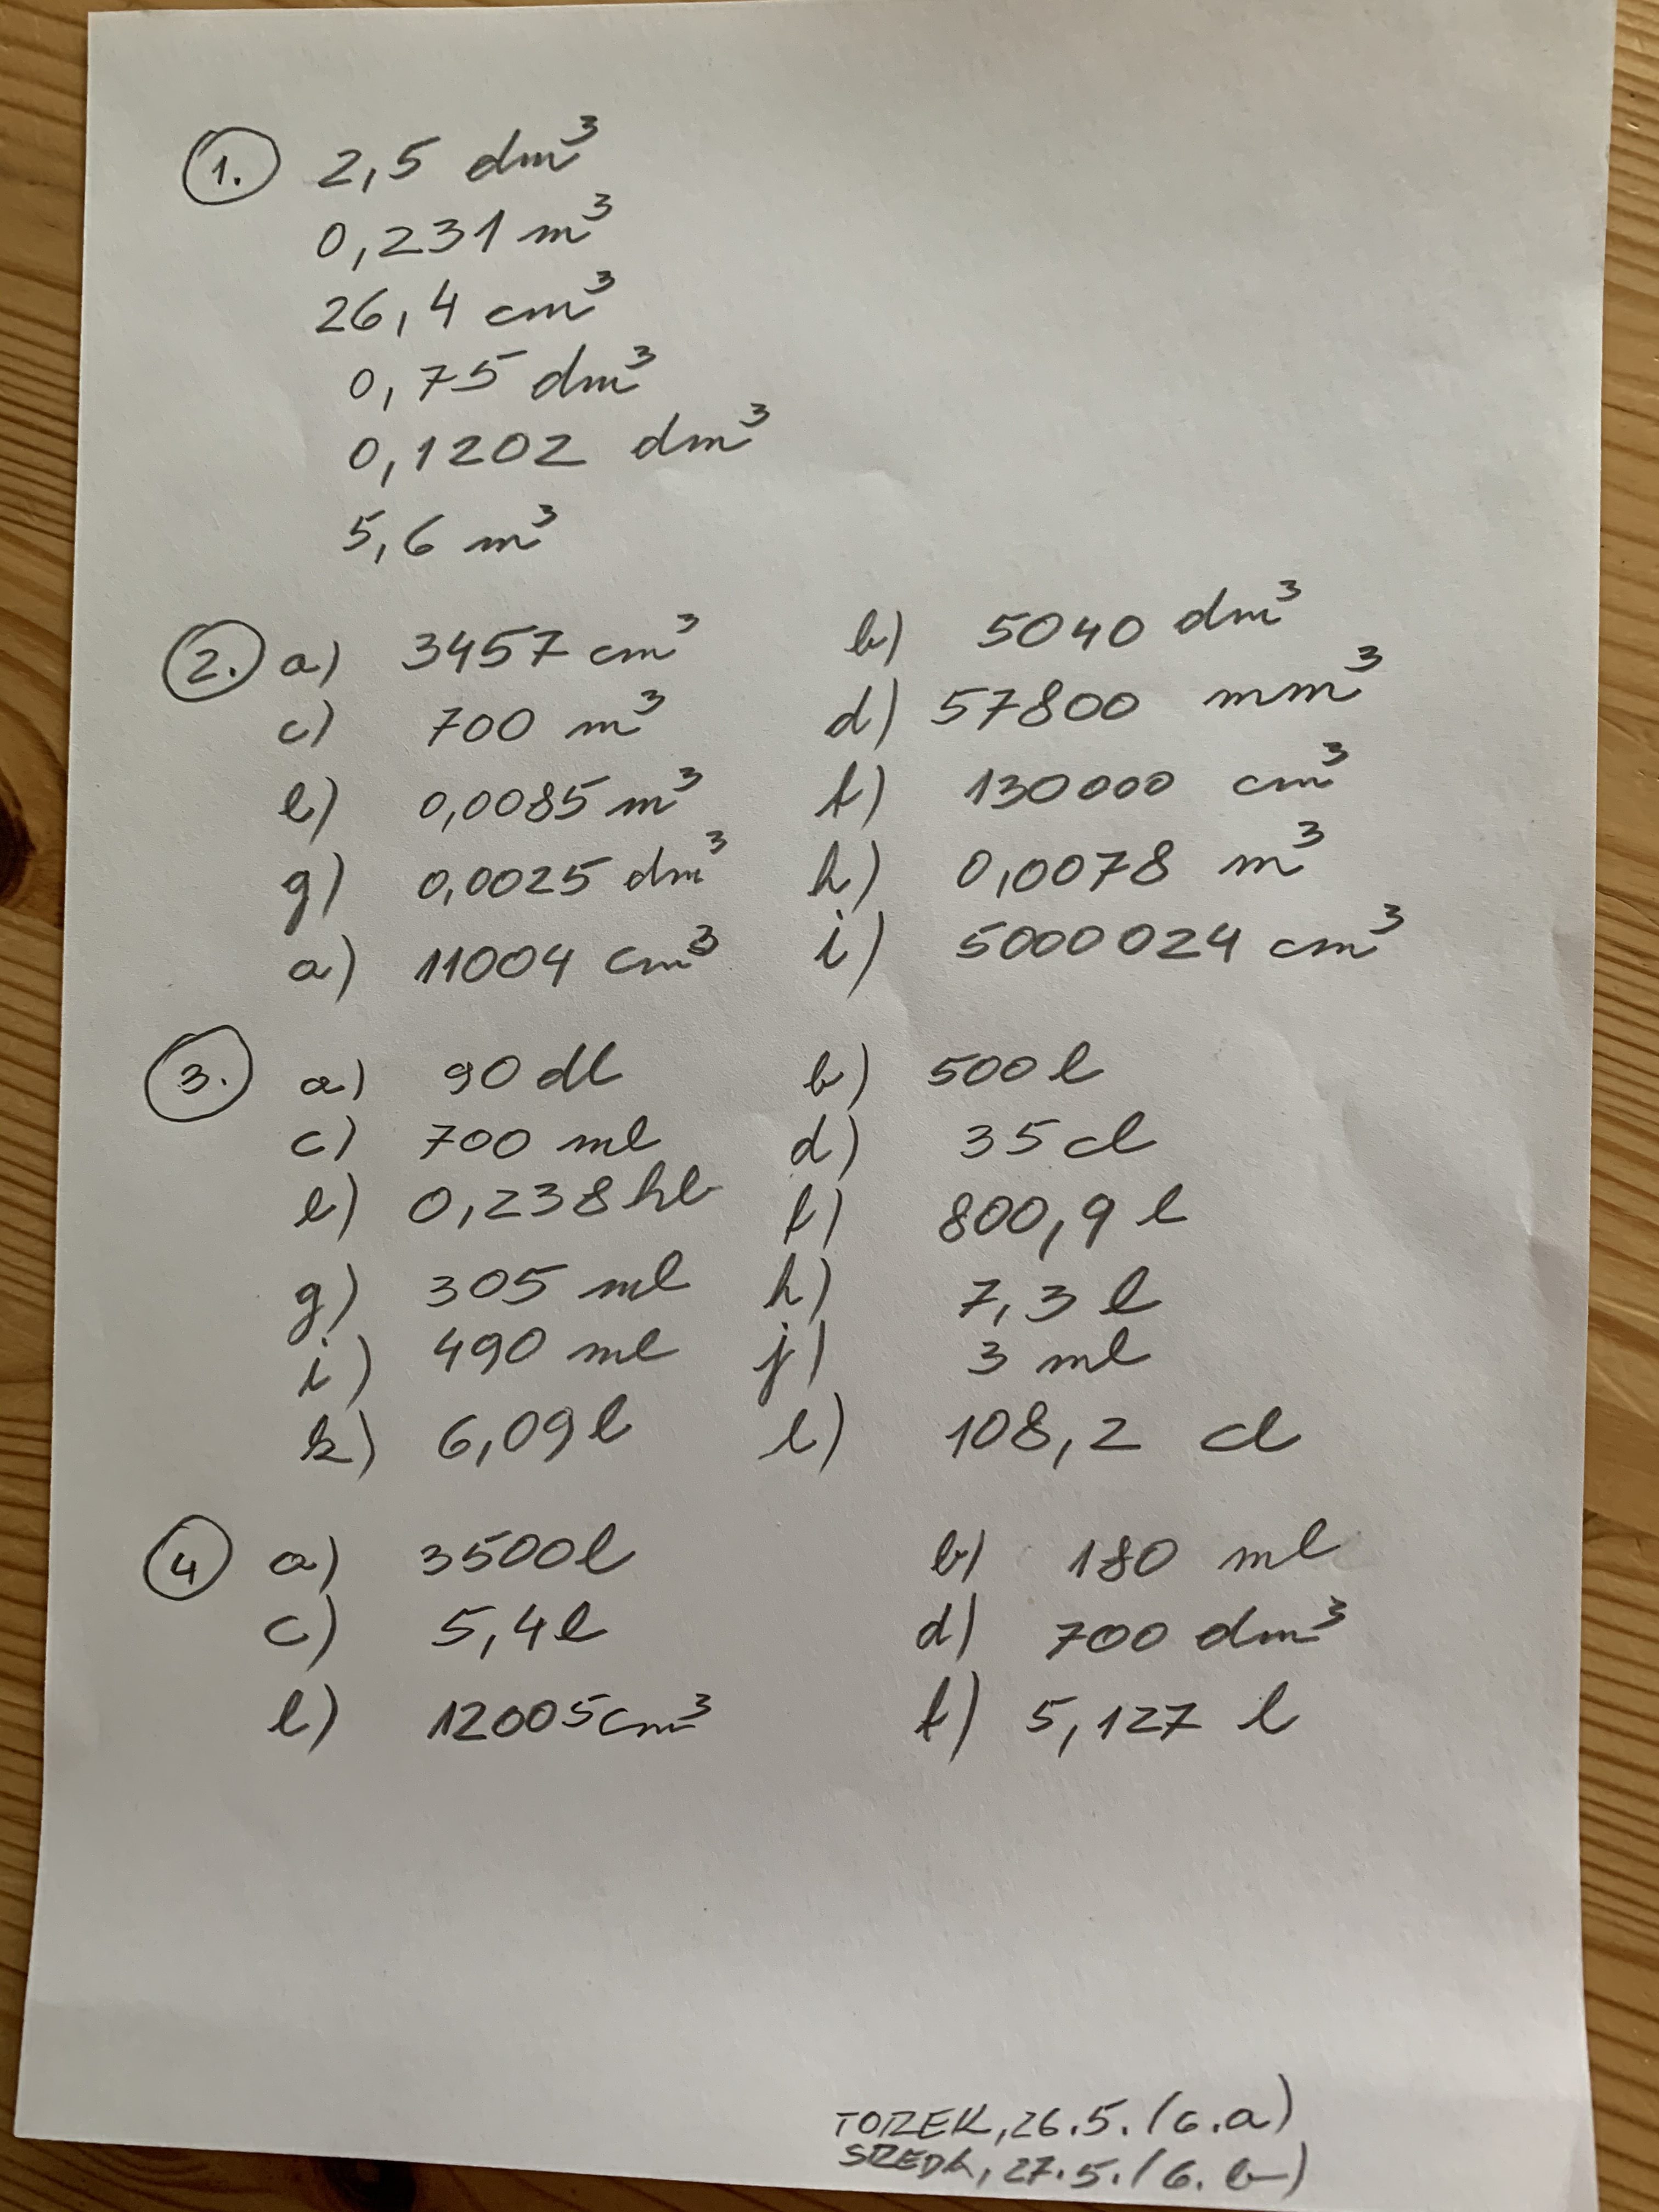 1. 2,5 dm³
0,231 m³
26,4 cm³
0,75 dm³
0,1202 dm³
5,6 m³
2. a) 3457 cm³ b) 5040 dm³
c) 700 m³ d) 57800 mm³
e) 0,0085 m³ f) 130000 cm³
g) 0,0025 dm³ h) 0,0078 m³
a) 11004 cm³ i) 5000024 cm³
3. a) 90 dl b) 500 l
c) 700 ml d) 35 cl
e) 0,238 hl f) 800,9 l
g) 305 ml h) 7,3 l
i) 490 ml j) 3 ml
k) 6,09 l l) 108,2 cl
4 a) 3500 l b) 180 ml
c) 5,4 l d) 700 dm³
e) 12005 cm³ f) 5,127 l
TOREK, 26.5. (6.a)
SREDA, 27.5. (6.b)